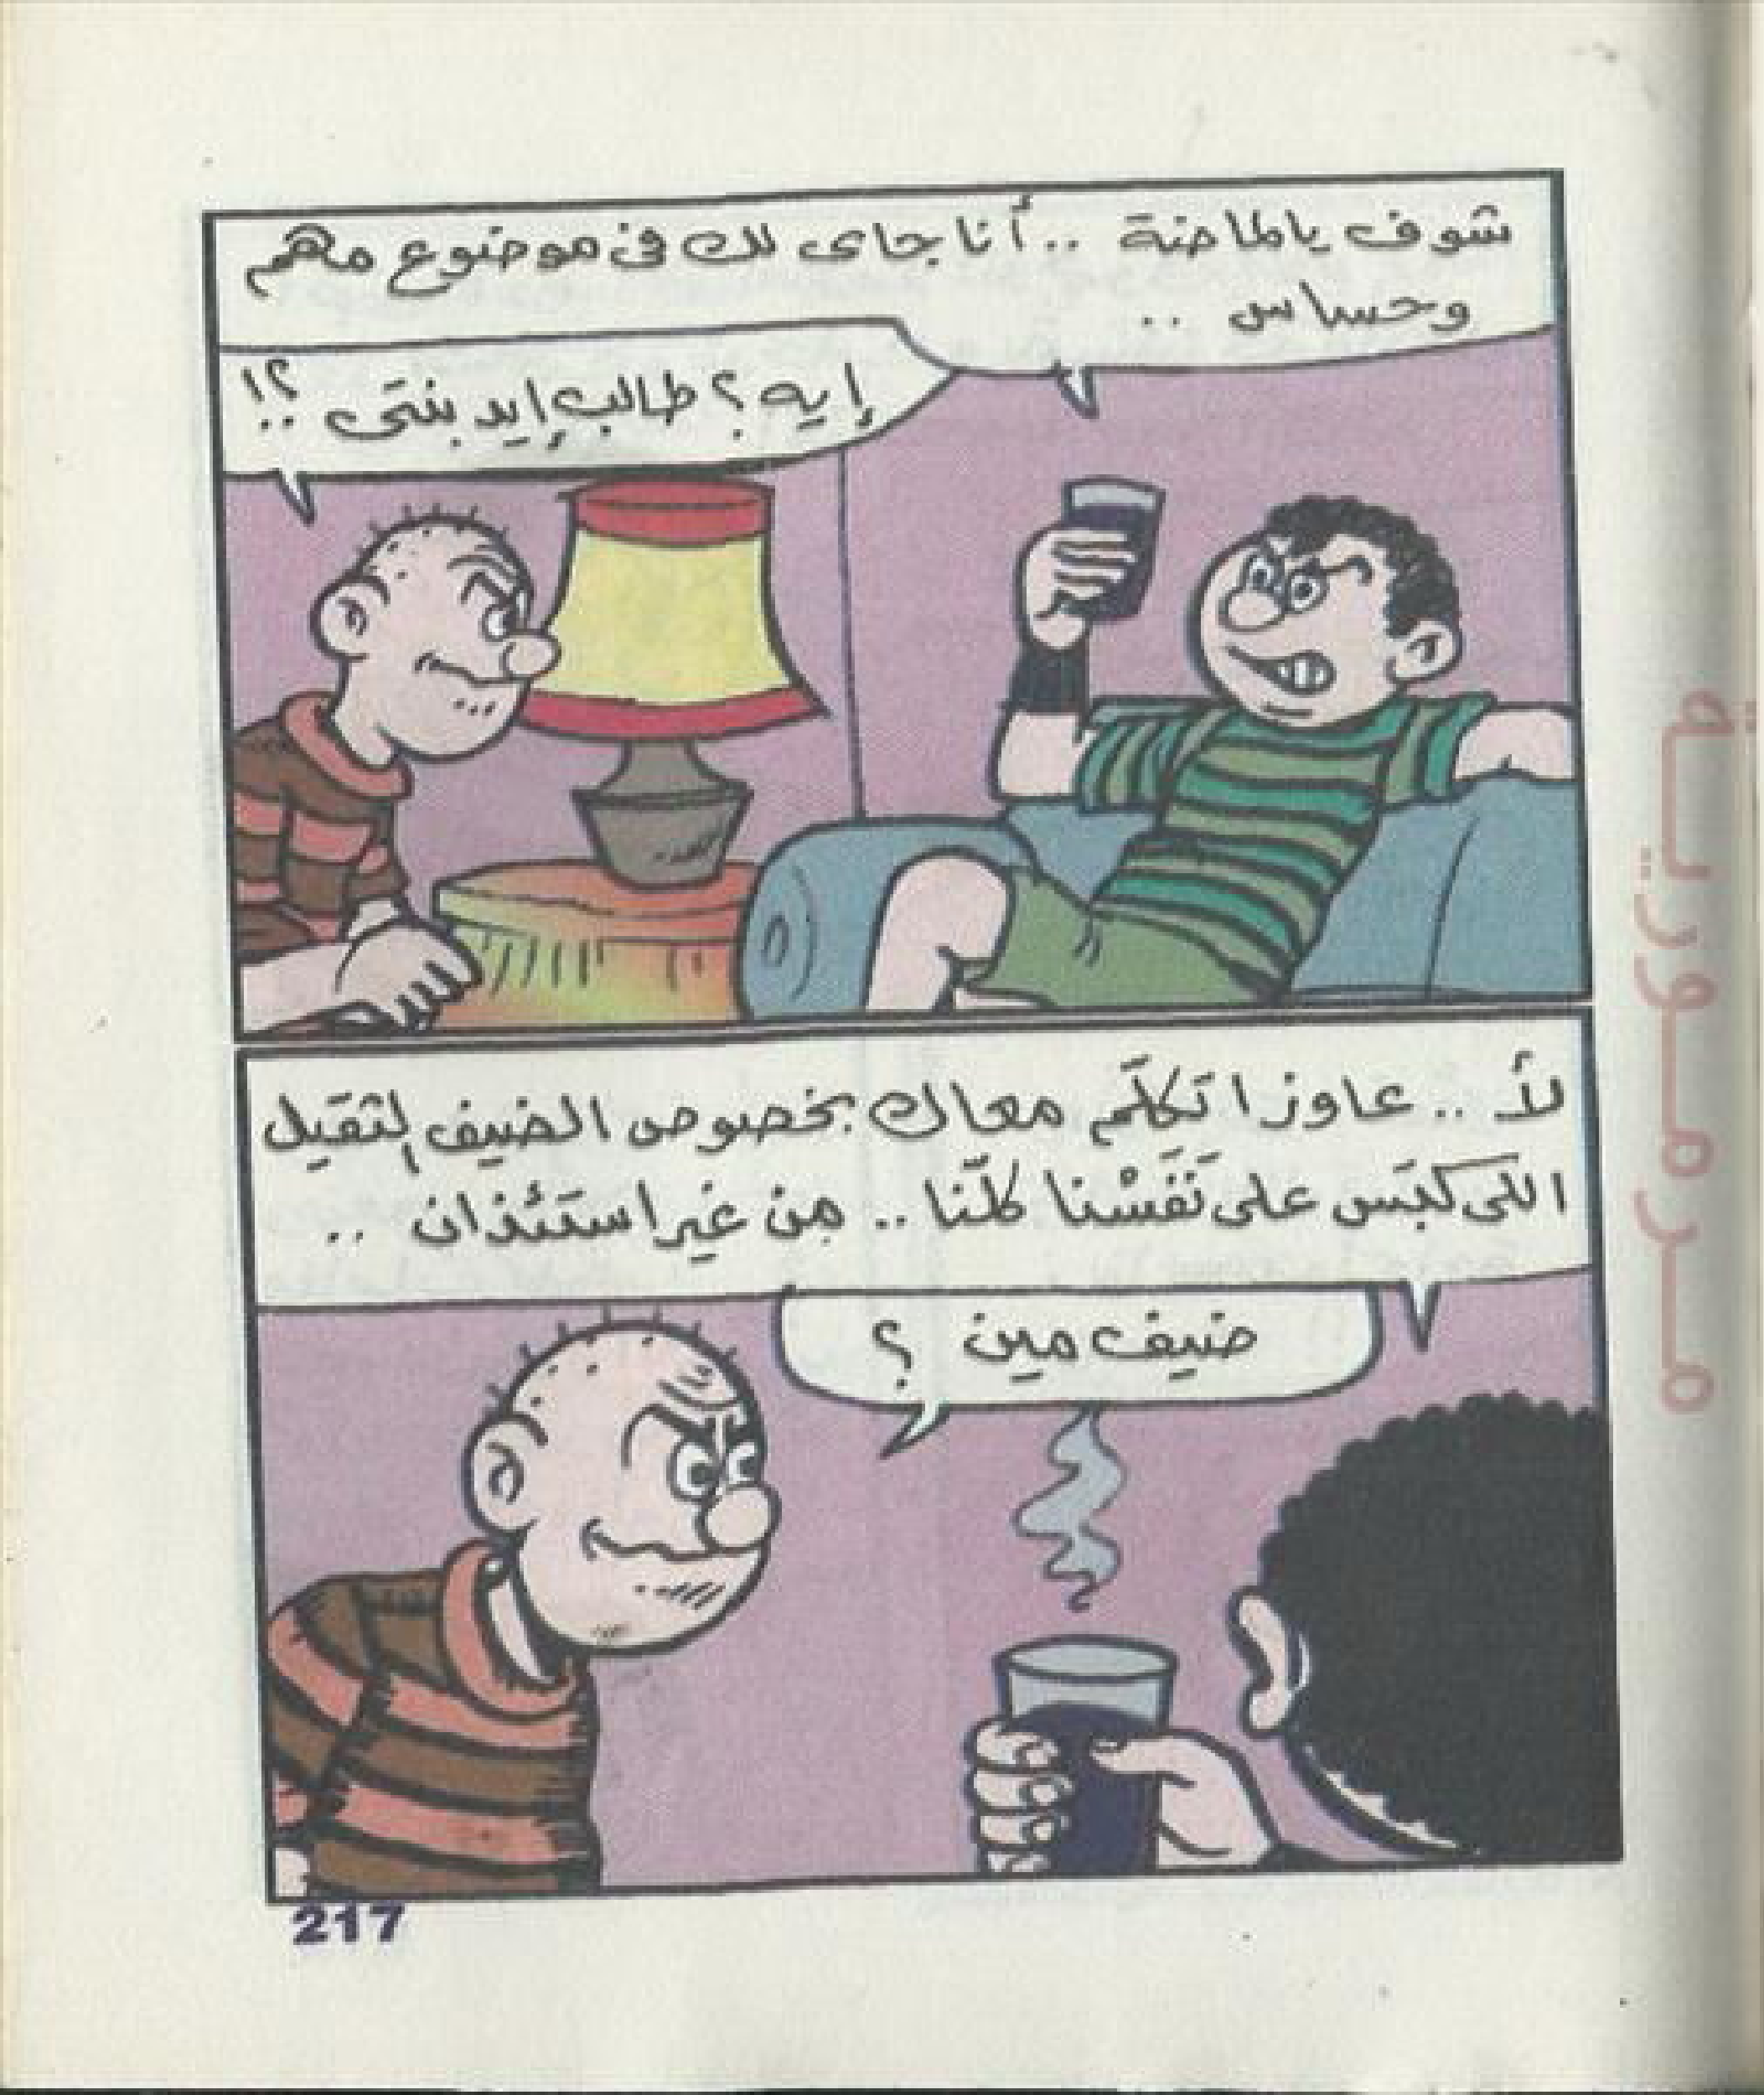 شوف ياطاحنة .. أنا جاى لك فى موضوع مهم
وحساس ..
إيه ؟ طالب إيد بنتى ؟!
لأ .. عاوز اتكلّم معاك بخصوص الضيف التقيل
اللى كبَس على نَفَسْنا كلّنا .. من غير استئذان ..
ضيف مين ؟
217
مرمورية